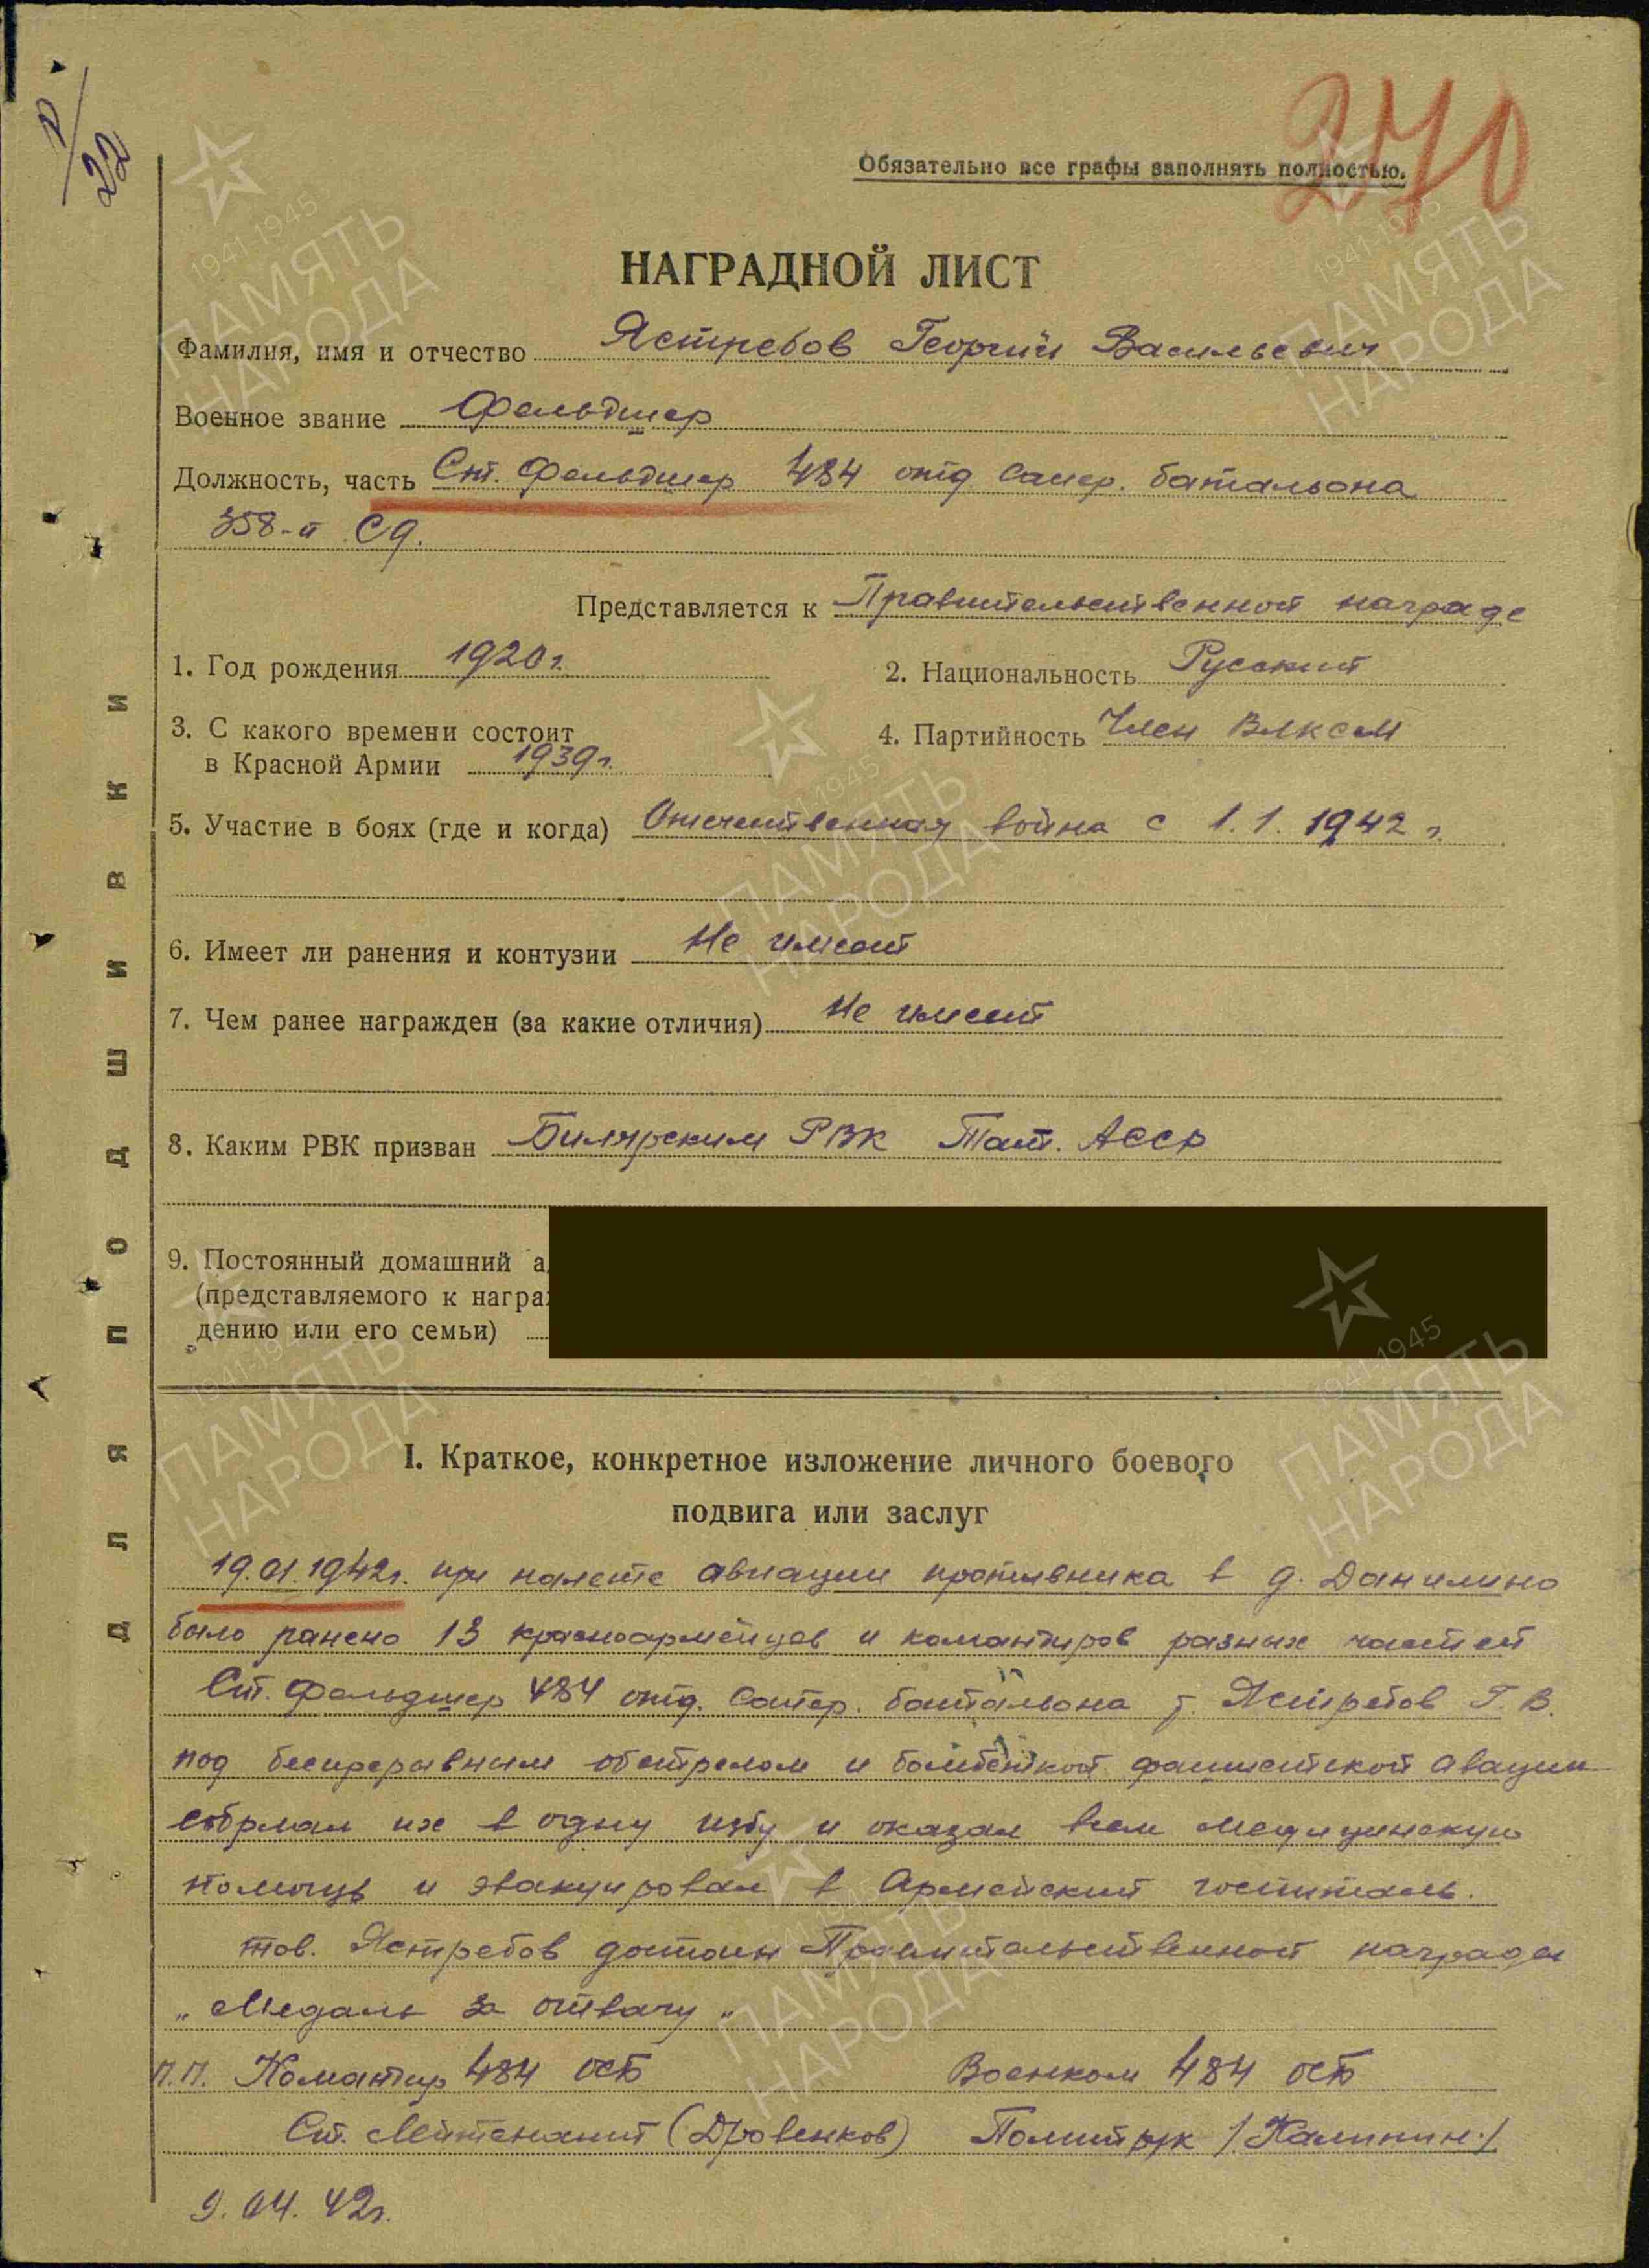 Р/22
270
Обязательно все графы заполнять полностью.
НАГРАДНОЙ ЛИСТ
Фамилия, имя и отчество Ястребов Георгий Васильевич
Военное звание Фельдшер
Должность, часть Ст. Фельдшер 484 отд сапер. батальона
358-й СД.
Представляется к Правительственной награде
1. Год рождения 1920 г.
2. Национальность Русский
3. С какого времени состоит
в Красной Армии 1939 г.
4. Партийность Член ВЛКСМ
5. Участие в боях (где и когда) Отечественная война с 1.1.1942 г.
6. Имеет ли ранения и контузии Не имеет
7. Чем ранее награжден (за какие отличия) Не имеет
8. Каким РВК призван Билярским РВК Тат. АССР
9. Постоянный домашний а
(представляемого к награж
дению или его семьи)
I. Краткое, конкретное изложение личного боевого
подвига или заслуг
19.01.1942 г. при налете авиации противника в д. Данилино
было ранено 13 красноармейцев и командиров разных частей
Ст. Фельдшер 484 отд. сапер. батальона т. Ястребов Г. В.
под беспрерывным обстрелом и бомбежкой фашистской авации
собрал их в одну избу и оказал всем медицинскую
помощь и эвакуировал в Армейский госпиталь.
тов. Ястребов достоин Правительственной награды
„Медаль за отвагу„
п.п. Командир 484 ОСБ Военком 484 ОСБ
Ст. Лейтенант (Дровенков) Политрук /Калинин/
9.04.42 г.
ДЛЯ ПОДШИВКИ
1941-1945
ПАМЯТЬ
НАРОДА